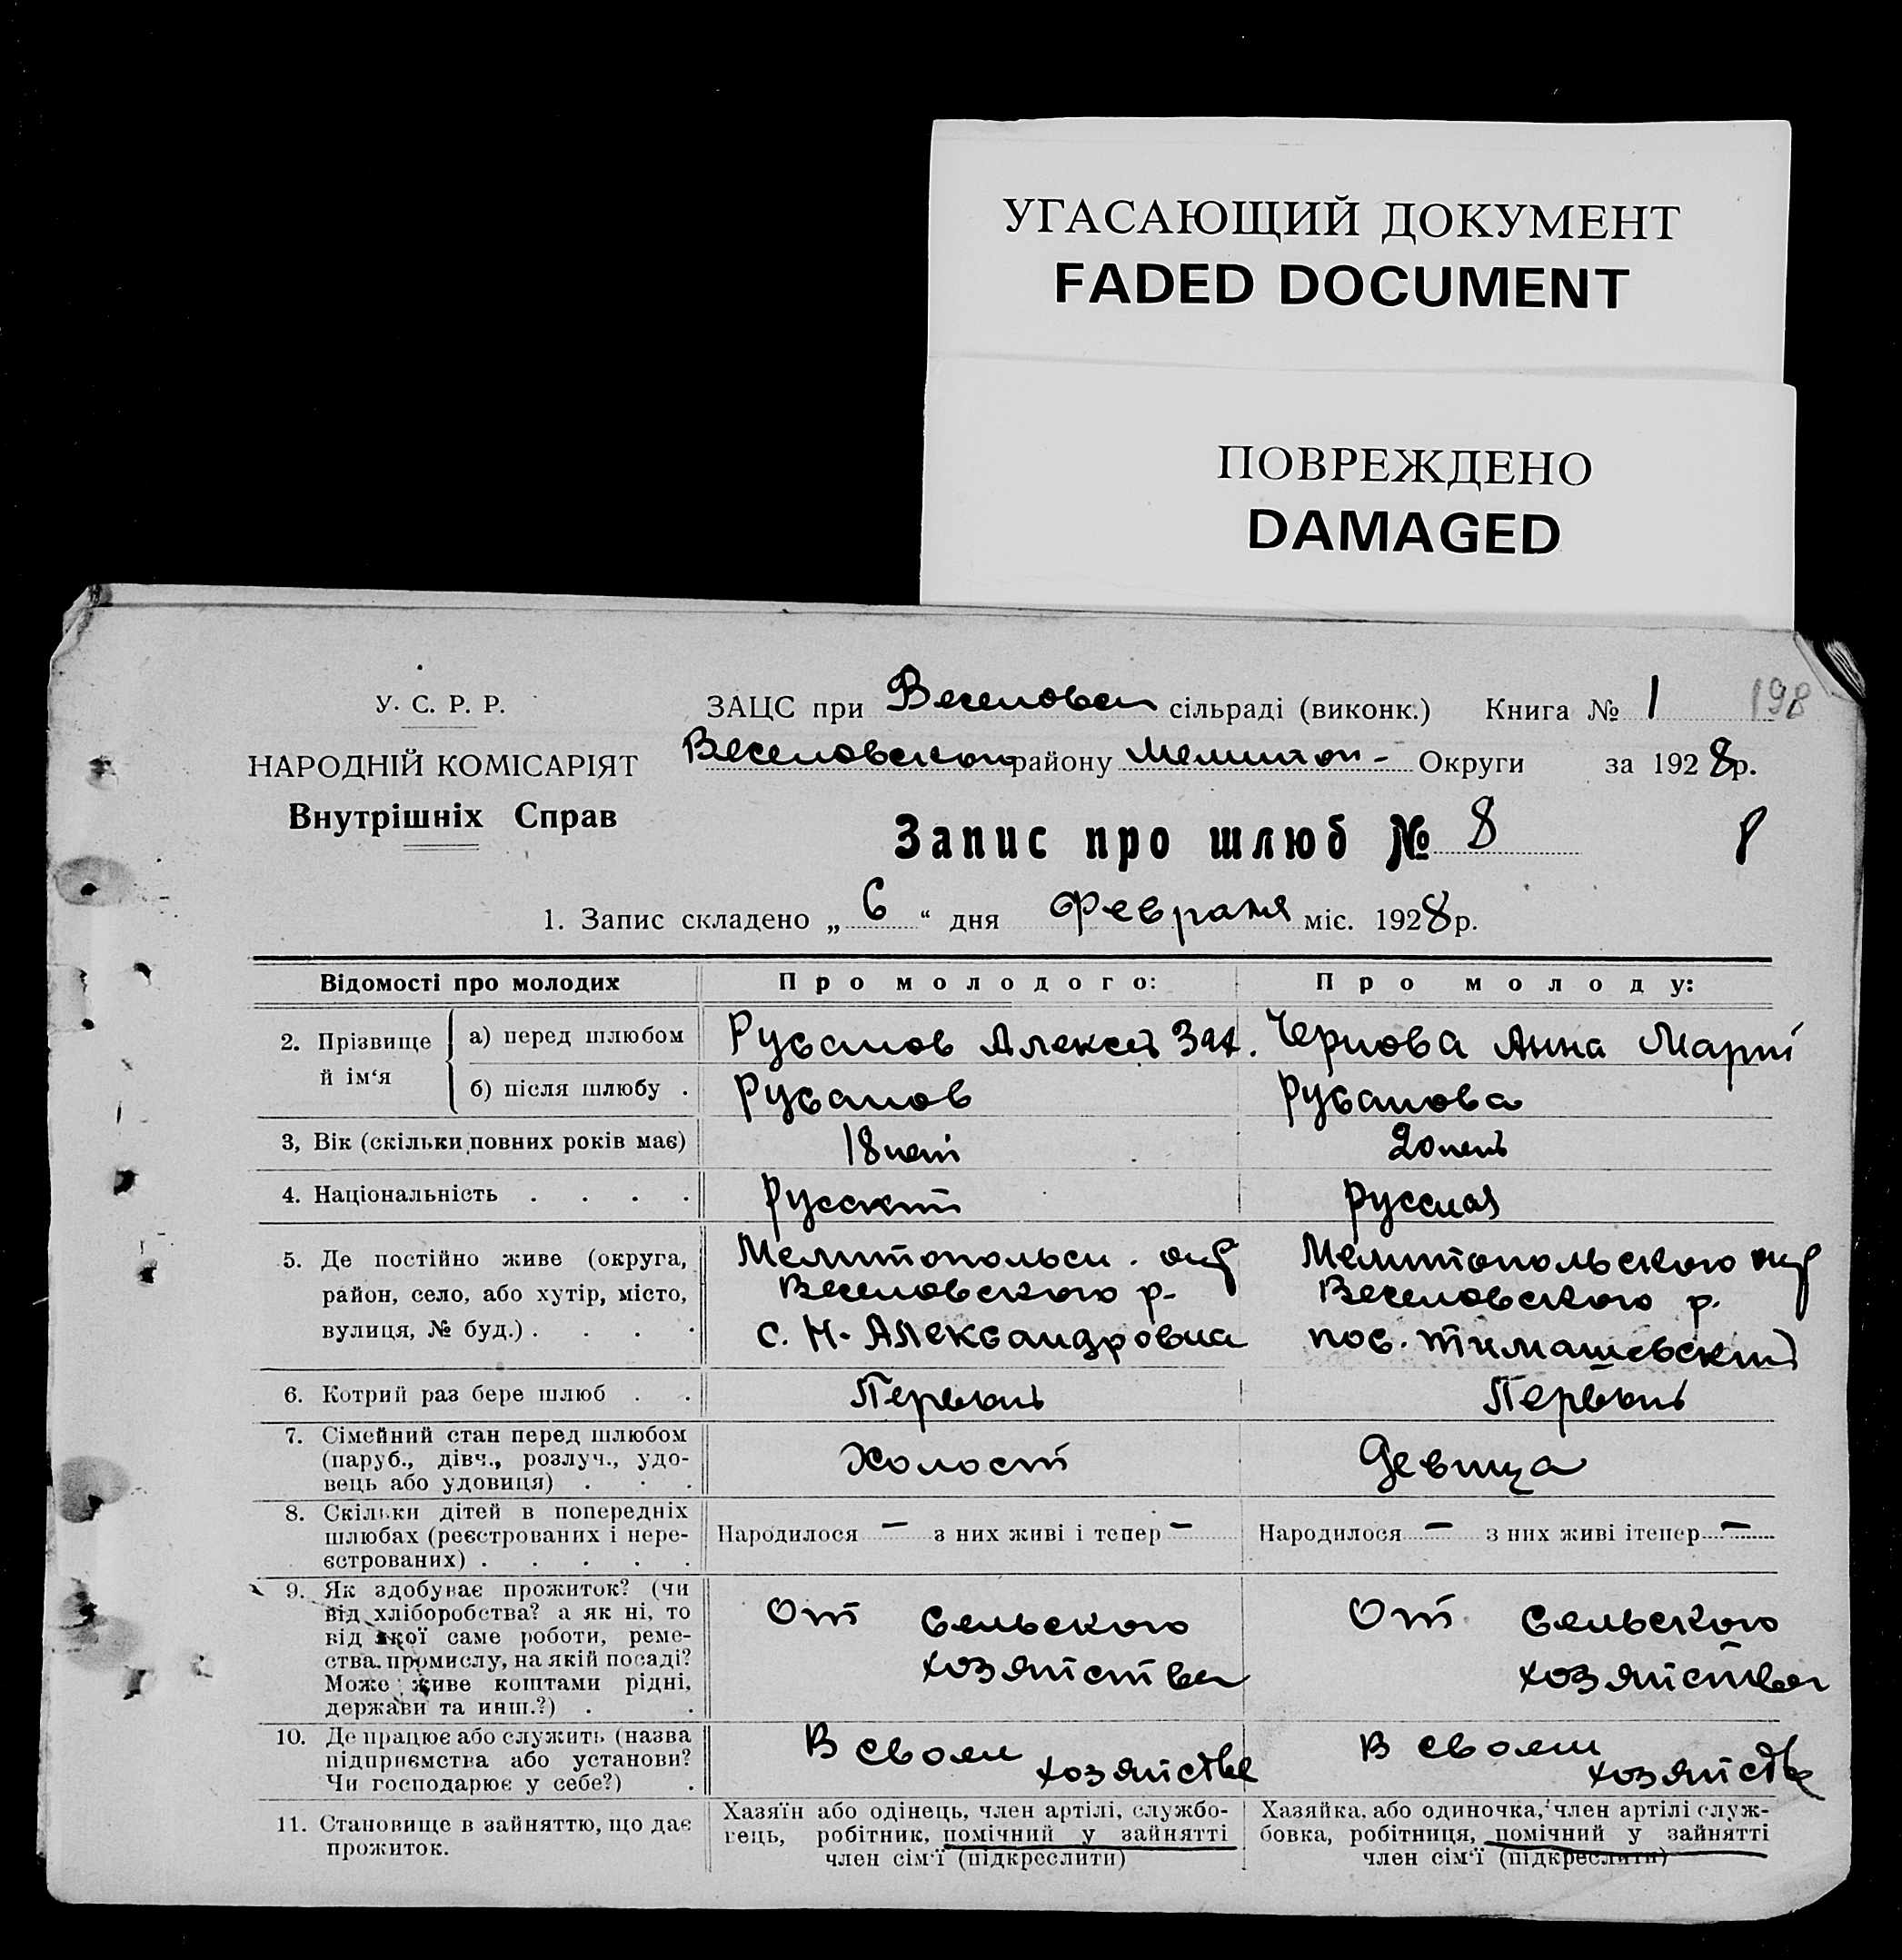 УГАСАЮЩИЙ ДОКУМЕНТ
FADED DOCUMENT
ПОВРЕЖДЕНО
DAMAGED
198
У. С. Р. Р.
НАРОДНІЙ КОМІСАРІЯТ
Внутрішніх Справ
ЗАЦС при Веселовск сільраді (виконк.) Книга № 1
Веселовского району Мелитоп- Округи за 1928р.
Запис про шлюб № 8
8
1. Запис складено „ 6 “ дня Февраля міс. 1928р.
Відомості про молодих
Про молодого:
Про молоду:
2. Прізвище й ім‘я
а) перед шлюбом
Русанов Алексей Зах.
Чернова Анна Март
б) після шлюбу .
Русанов
Русанова
3, Вік (скільки повних років має)
18 лет
20 лет
4. Національність . . . .
Русский
Русская
5. Де постійно живе (округа,
район, село, або хутір, місто,
вулиця, № буд.) . . . .
Мелитопольск. окр
Веселовского р-
с. Н-Александровка
Мелитопольского окр
Веселовского р.
пос. Тимашевский
6. Котрий раз бере шлюб . .
Первый
Первый
7. Сімейний стан перед шлюбом
(паруб., дівч., розлуч., удо-
вець або удовиця) . . .
Холост
Девица
8. Скільки дітей в попередніх
шлюбах (реєстрованих і нере-
єстрованих) . . . . .
Народилося — з них живі і тепер —
Народилося — з них живі ітепер —
9. Як здобуває прожиток? (чи
від хліборобства? а як ні, то
від якої саме роботи, реме-
ства, промислу, на якій посаді?
Може живе коштами рідні,
держави та инш.?) . .
От сельского
хозяйства
От сельского
хозяйства
10. Де працює або служить (назва
підприємства або установи?
Чи господарює у себе?) .
В своем
хозяйстве
В своем
хозяйстве
11. Становище в зайняттю, що дає
прожиток.
Хазяїн або одінець, член артілі, службо-
вець, робітник, помічний у зайнятті
член сім‘ї (підкреслити)
Хазяйка, або одиночка, член артілі служ-
бовка, робітниця, помічний у зайнятті
член сім‘ї (підкреслити)